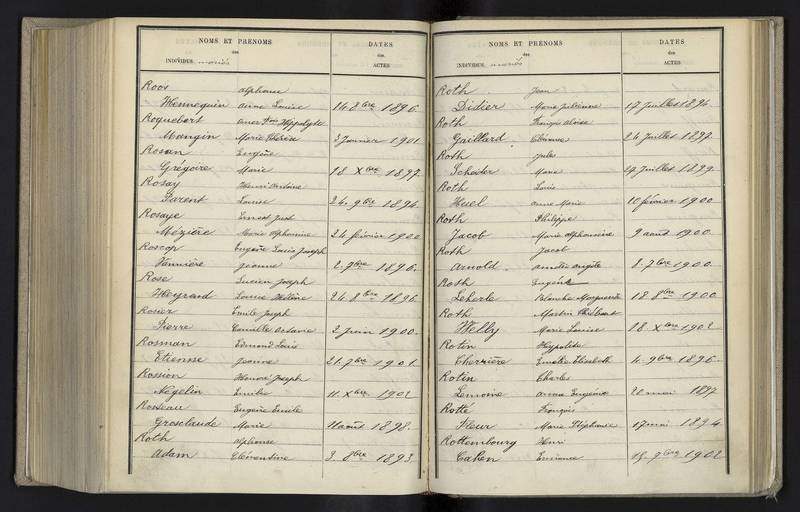 NOMS ET PRÉNOMS
des
INDIVIDUS mariés
DATES
des
ACTES
Roos Alphonse
Hennequin Anne Louise 14 8bre 1896
Roquebert
Mangin Marie Thérèse 3 Janvier 1901
Rosan Eugène
Grégoire Marie 18 Xbre 1897
Rosay Henri Antoine
Parent Louise 24 9bre 1894
Rosaye Ernest Just
Mézière Marie Alphonsine 24 février 1900
Roscop Eugène Louis Joseph
Vannière Jeanne 2 9bre 1896
Rose Lucien Joseph
Weyrand Louise Hélène 24 8bre 1896
Rosier Emile Joseph
Pierre Camille Octavie 2 Juin 1900
Rosman Edmond Louis
Etienne Jeanne 21 7bre 1901
Rossion Honoré Joseph
Negelin Emilie 11 Xbre 1902
Rosseau Eugène Emile
Grosclaude Marie 11 août 1898
Roth Alphonse
Adam Clémentine 3 8bre 1893
NOMS ET PRÉNOMS
des
INDIVIDUS mariés
DATES
des
ACTES
Roth Jean
Didier Marie Julienne 17 Juillet 1894
Roth François Aloïse
Gaillard 24 Juillet 1897
Roth Jules
Scheider Marie 29 Juillet 1899
Roth Louis
Huel Anne Marie 10 février 1900
Roth Philippe
Jacob Marie Alphonsine 9 août 1900
Roth Jacob
Arnold 8 7bre 1900
Roth Eugène
Leherle Blanche Marguerite 18 8bre 1900
Roth Martin Thiébaut
Welly Marie Louise 28 Xbre 1902
Rotin Hyppolite
Cherrière Emélie Elisabeth 4 9bre 1896
Rotin Charles
Lemoine Anna Eugénie 20 mai 1897
Rotté François
Fleur Marie Stéphanie 17 mai 1894
Rottembourg Henri
Cahen 15 9bre 1902